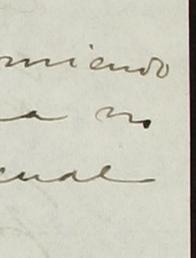 miendo
a no
cual